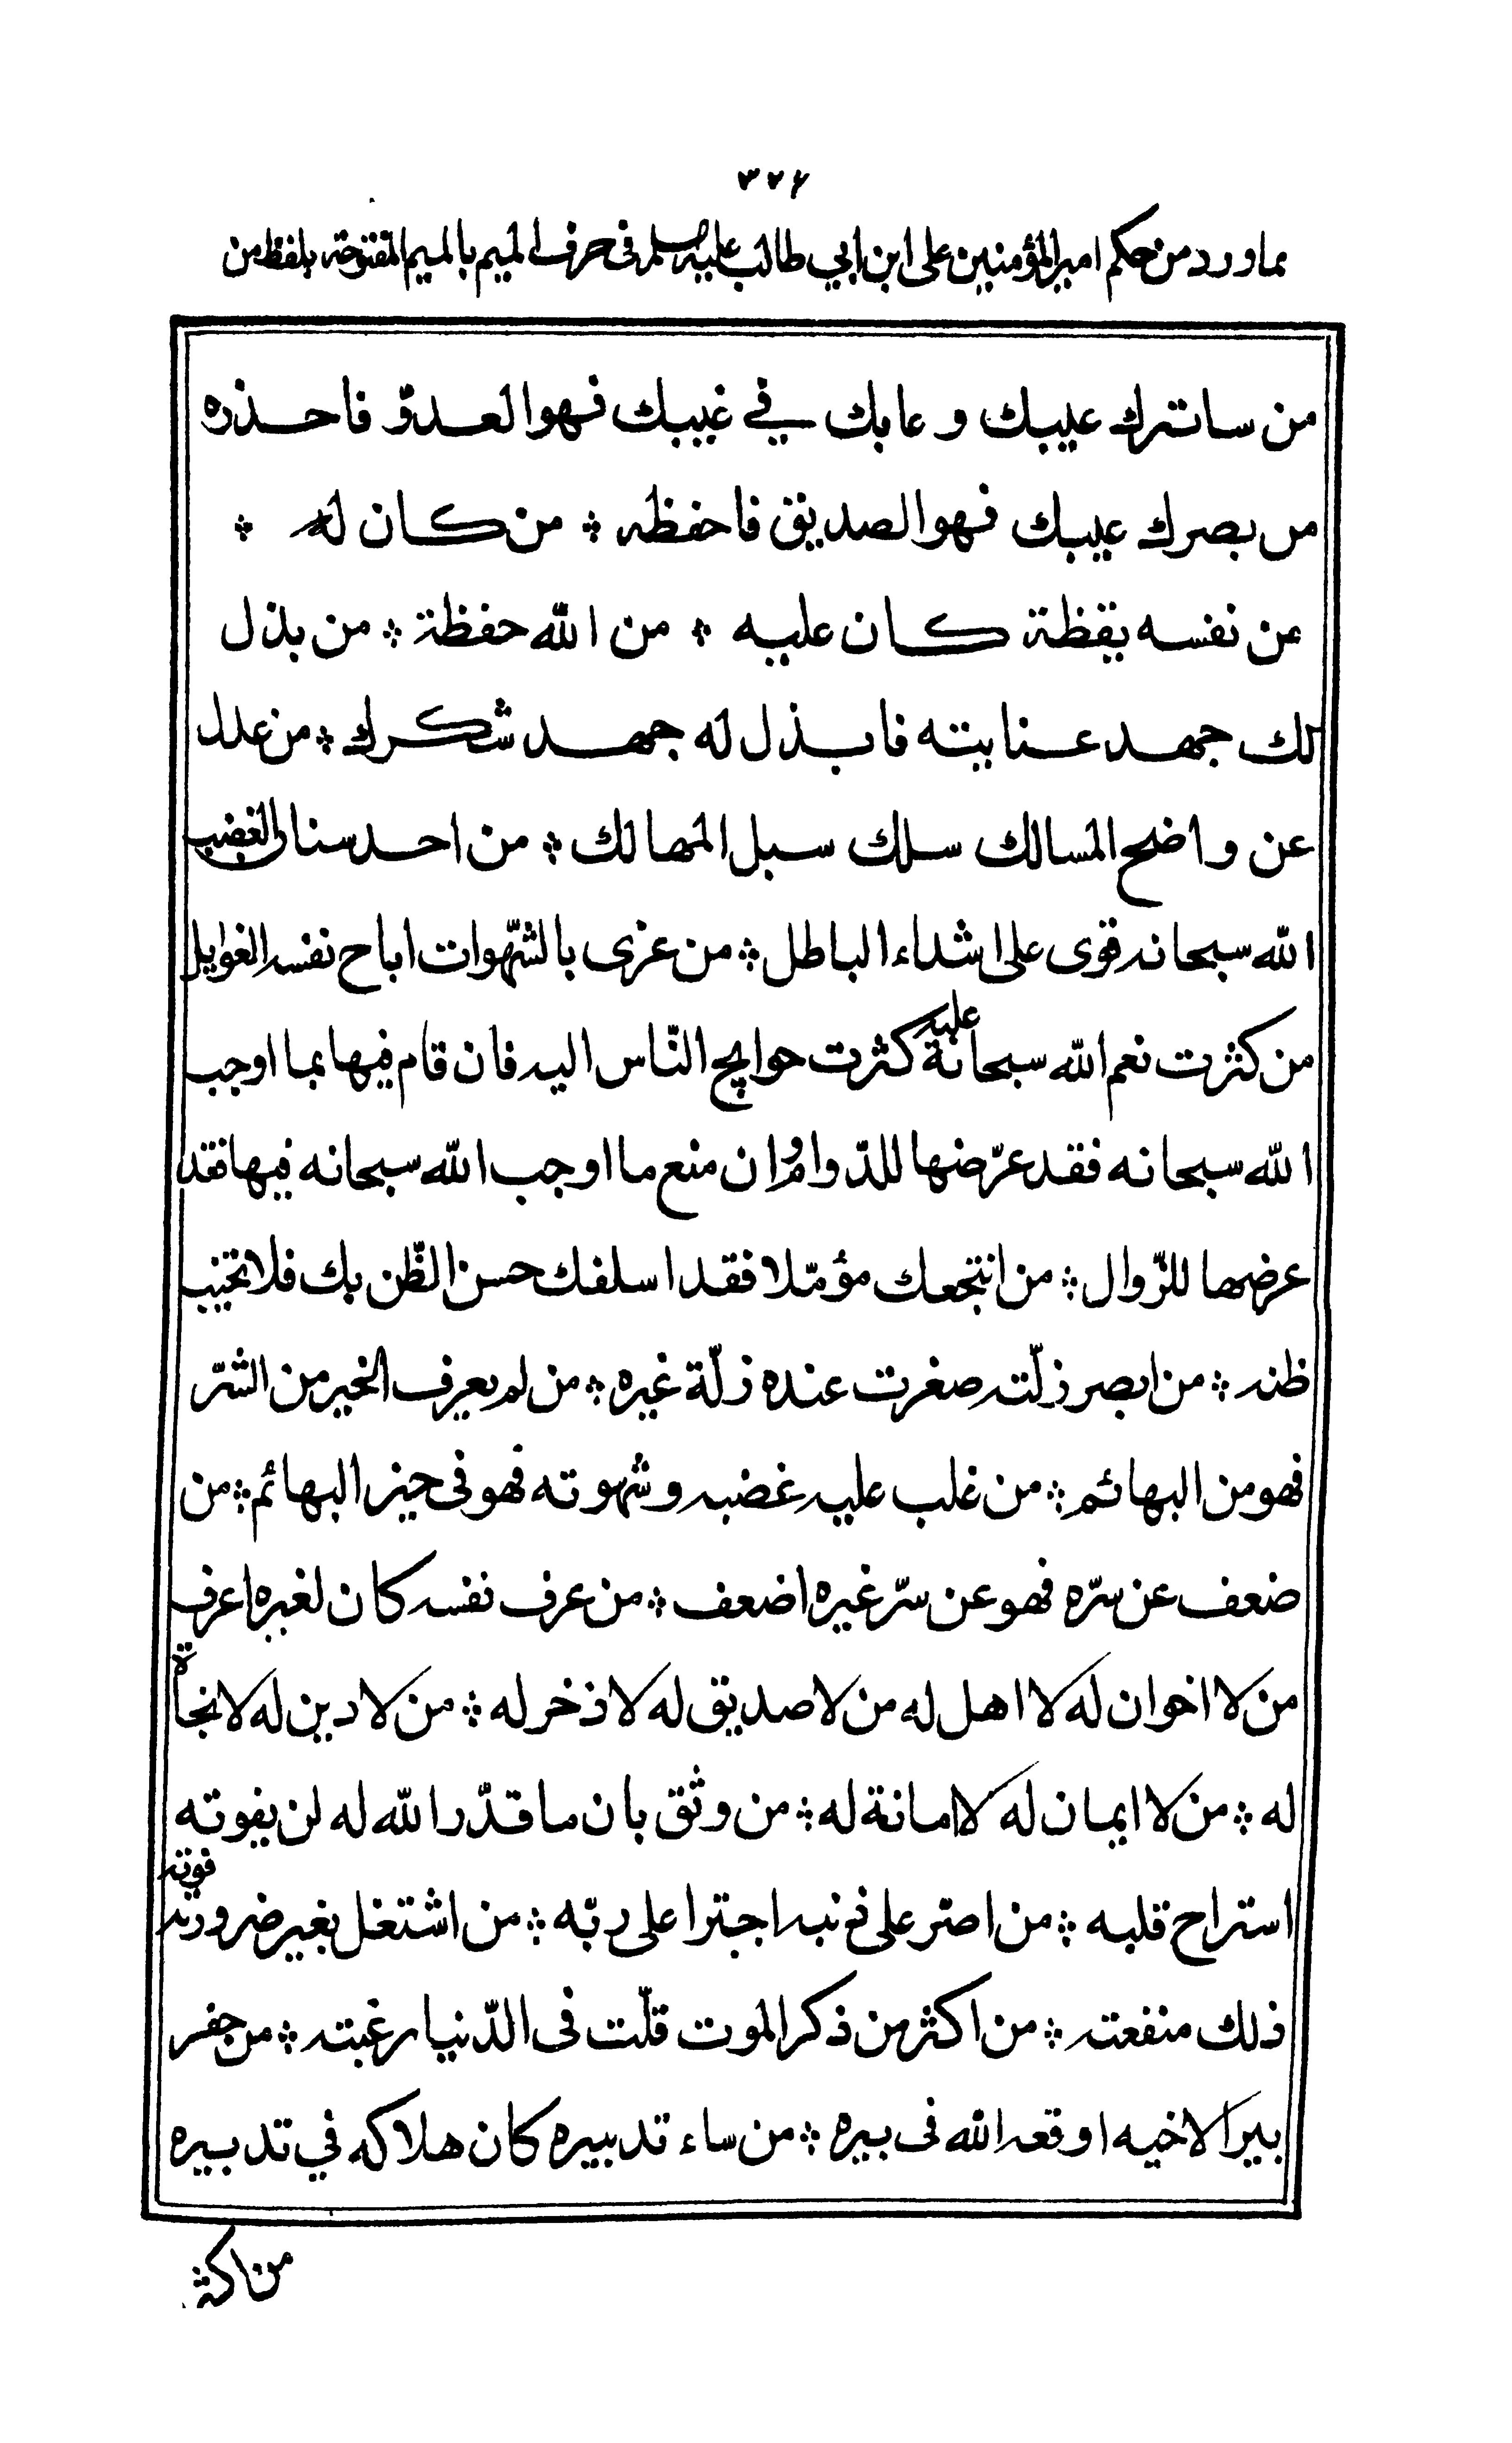 ٣٢٤
مما ورد من حكم امير المؤمنين على ابن ابي طالب عليه السلم فى حرف الميم بالميم المفتوحة بلفظ من
من ساترك عيبك و عابك في غيبك فهو العدوّ فاحذره
من بصرك عيبك فهو الصديق فاحفظه ؞ من كان له ؞
من نفسه يقظة كان عليه ؞ من الله حفظة ؞ من بذل
لك جهد عنايته فابذل له جهد شكرك ؞ من عدل
عن واضح المسالك سلك سبل المهالك ؞ من احد سنان الغضب
الله سبحانه قوى على اشداء الباطل ؞ من غرى بالشّهوات اباح نفسه الغوايل
من كثرت نعم الله سبحانه عليه كثرت حوايج النّاس اليه فان قام فيها بما اوجب
الله سبحانه فقد عرّضها للدّوام وان منع ما اوجب الله سبحانه فيها فقد
عرضها للزّوال ؞ من انتجعك مؤمّلا فقد اسلفك حسن الظّن بك فلا تخيب
ظنه ؞ من ابصر زلّته صغرت عنده زلّة غيره ؞ من لم يعرف الخير من الشّر
فهو من البهائم ؞ من غلب عليه غضبه وشهوته فهو فى حيز البهائم ؞ من
ضعف عن سرّه فهو عن سرّ غيره اضعف ؞ من عرف نفسه كان لغيره اعرف
من لا اخوان له لا اهل له من لا صديق له لا ذخر له ؞ من لا دين له لا نجاة
له ؞ من لا ايمان له لا امانة له ؞ من وثق بان ما قدّر الله له لن يفوته
استراح قلبه ؞ من اصرّ على ذنبه اجترا على ربّه ؞ من اشتغل بغير ضرورته فوته
ذلك منفعته ؞ من اكثر من ذكر الموت قلّت فى الدّنيا رغبته ؞ من حفر
بيرا لاخيه اوقعه الله فى بيره ؞ من ساء تدبيره كان هلاكه في تدبيره
من اكثر